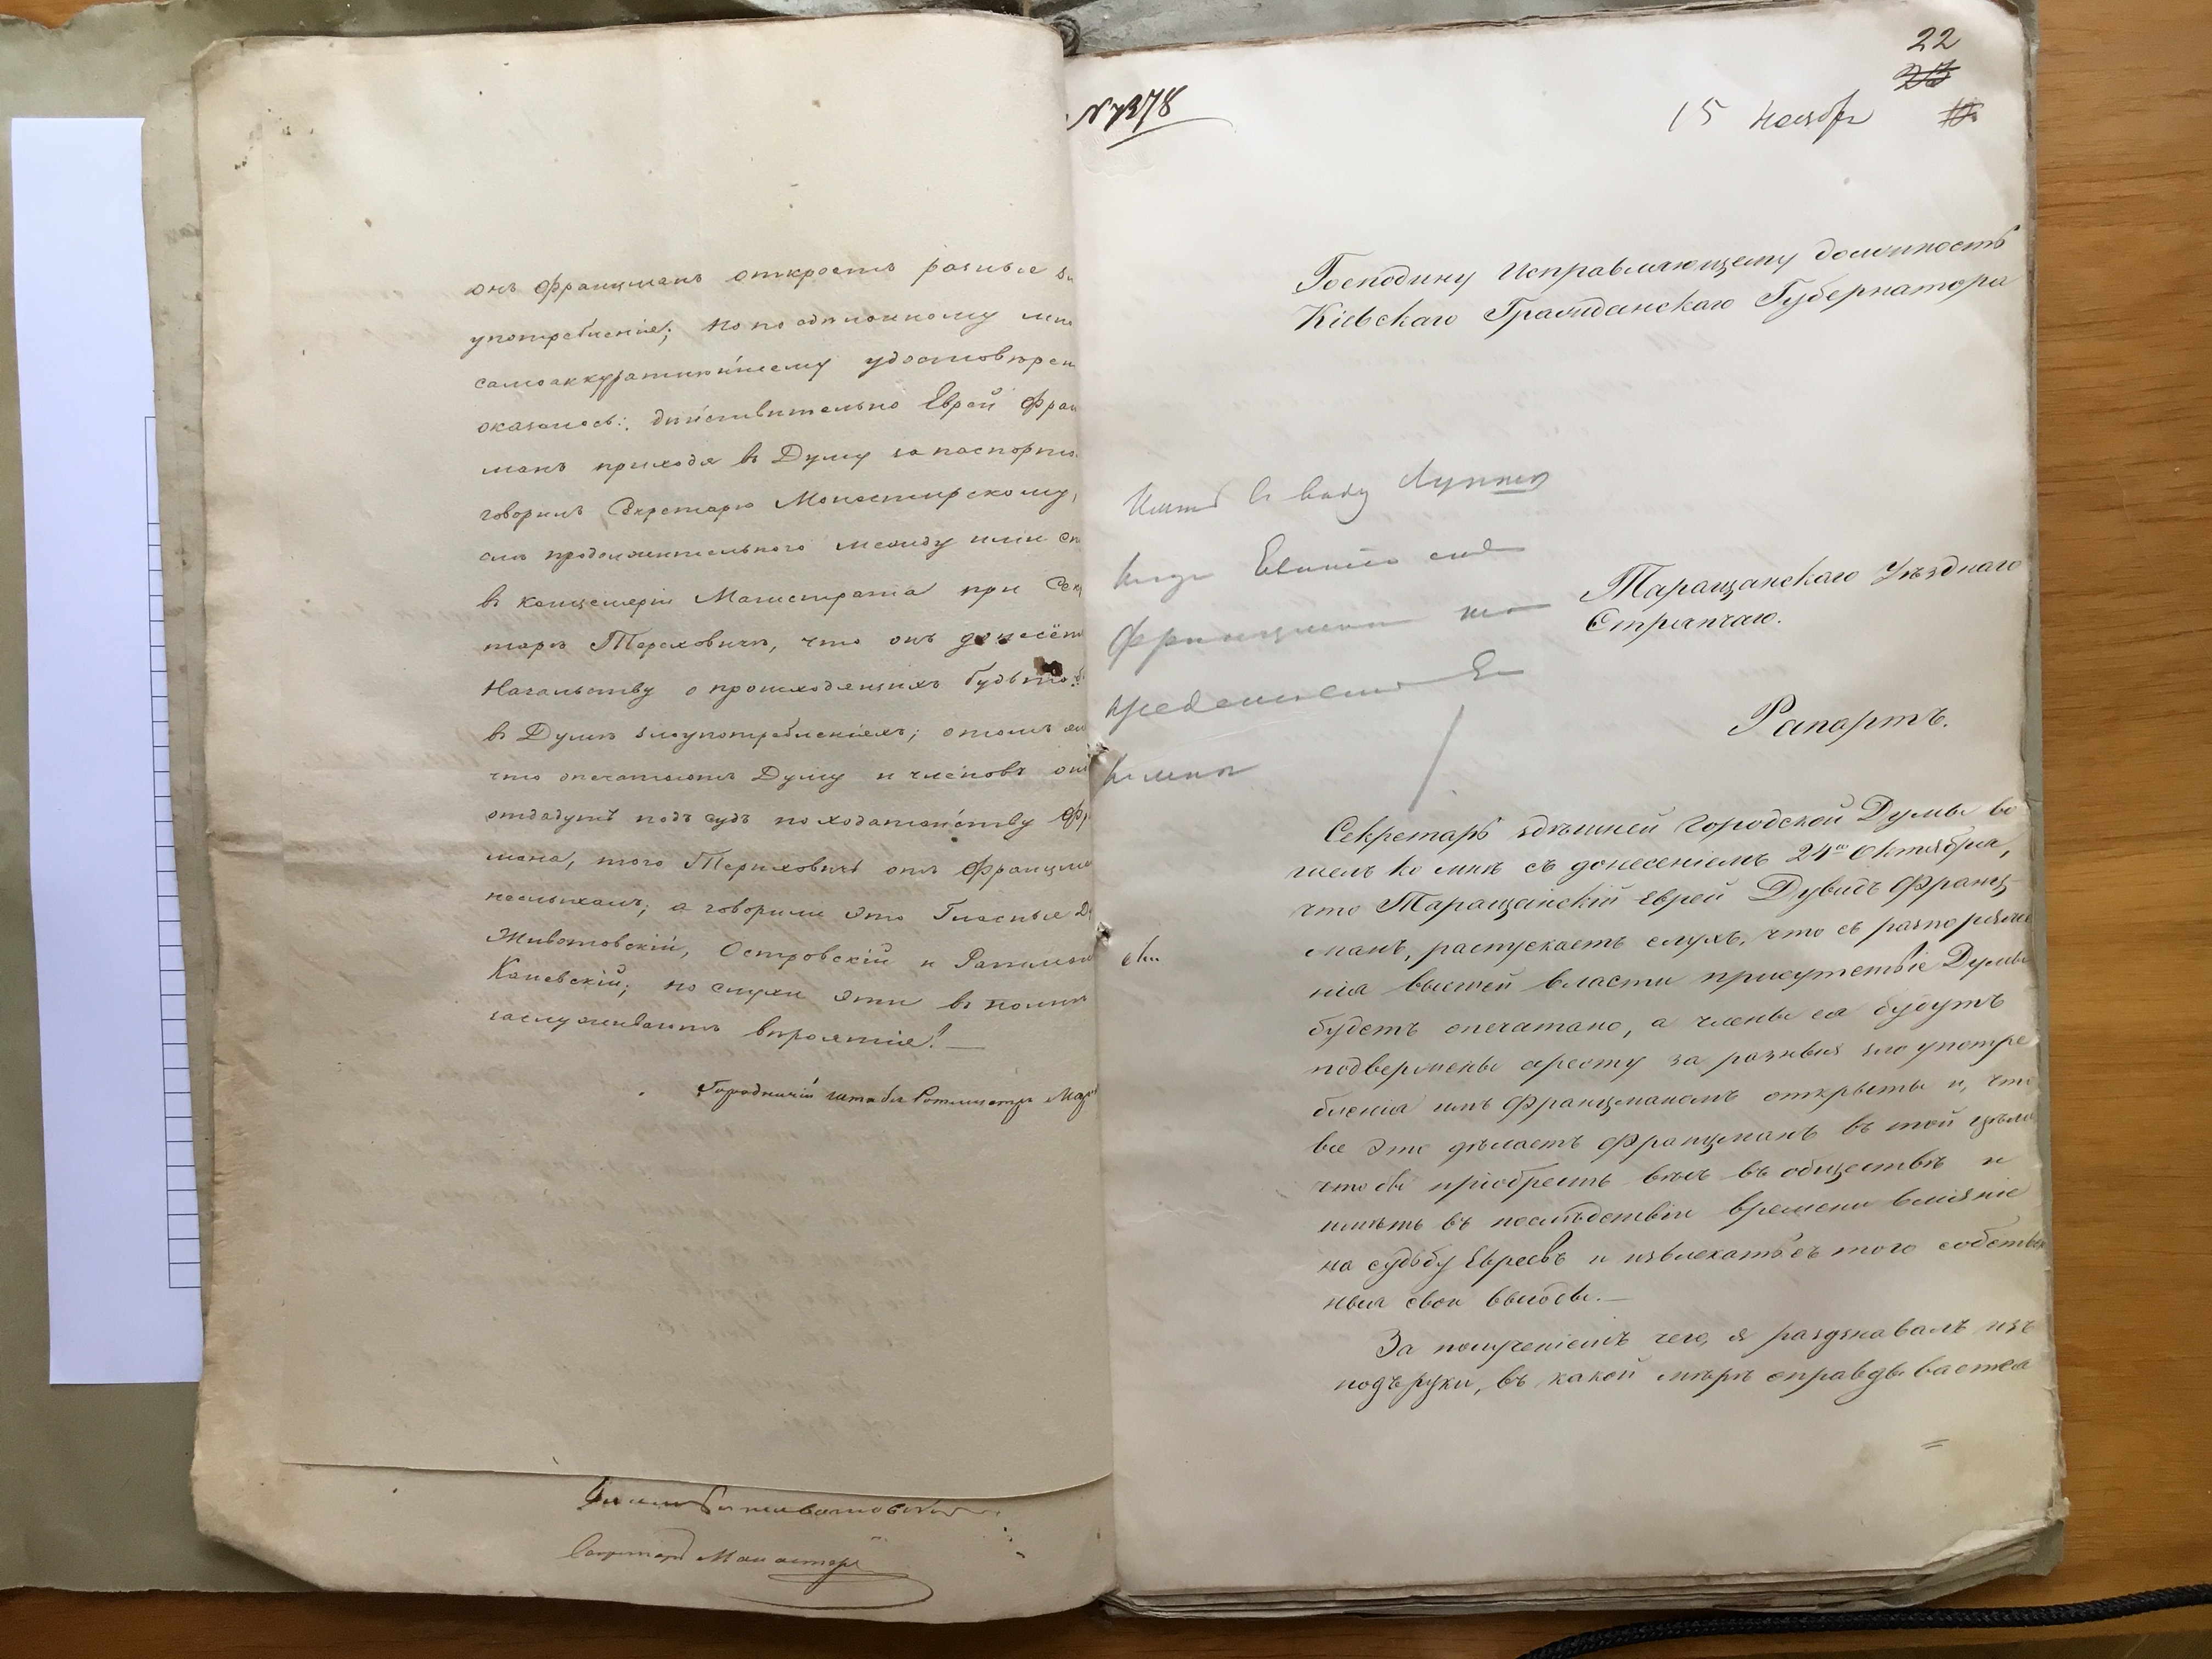 онъ Францманъ откроетъ разные зл
употребленія; но по одиножному
самоаккуратнѣйшему удостовѣрен
оказалось: дѣйствительно Еврей Фран
манъ приходя въ Думу за паспортом
говорилъ Секретарю Монастирскому,
продолжительного между ними сп
въ канцеляріи Магистрата при Сек
тарѣ Тереховичѣ, что онъ донесётъ
Начальству о происходящихъ будьто бы
въ Думѣ злоупотребленіяхъ; о томъ же
что опечатаютъ Думу и членовъ он
отдадутъ подъ судъ по ходатайству Фр
мана, того Териховичъ отъ Францма
неслыхалъ; а говорили это Гласные Д
Животовскій, Островскій и
Каневскій; но слухи эти въ полнѣ
заслуживаютъ вѣроятіе! —
Городничій штабъ Ротмистръ Маз
Секретарь Монастыр
№ 7378
22
15 Ноября
Господину Исправляющему должность
Кіевскаго Гражданскаго Губернатора
Имѣть въ виду
Еврейки
Францмана
Таращанскаго Уѣзднаго
Стряпчаго.
Рапортъ.
Секретарь здѣшней Городской Думы во
шелъ ко мнѣ съ донесеніемъ 24го Октября,
что Таращанскій Еврей Дувидъ Франц-
манъ, распускаетъ слухъ, что съ распоряже
нія высшей власти присутствіе Думы
будетъ опечатано, а члены ея будутъ
подвержены аресту за разныя злоупотре
бленія имъ Францманомъ открыты и, что
все это дѣлаетъ Францманъ въ той цѣли
чтобы пріобресть вѣсъ въ обществѣ и
имѣть въ послѣдствіи времени вліяніе
на судьбу Евреевъ и извлекать съ того собствен
ныя свои выгоды. —
За полученіемъ чего, я разузнавалъ изъ
подъ руки, въ какой мѣрѣ оправдывается